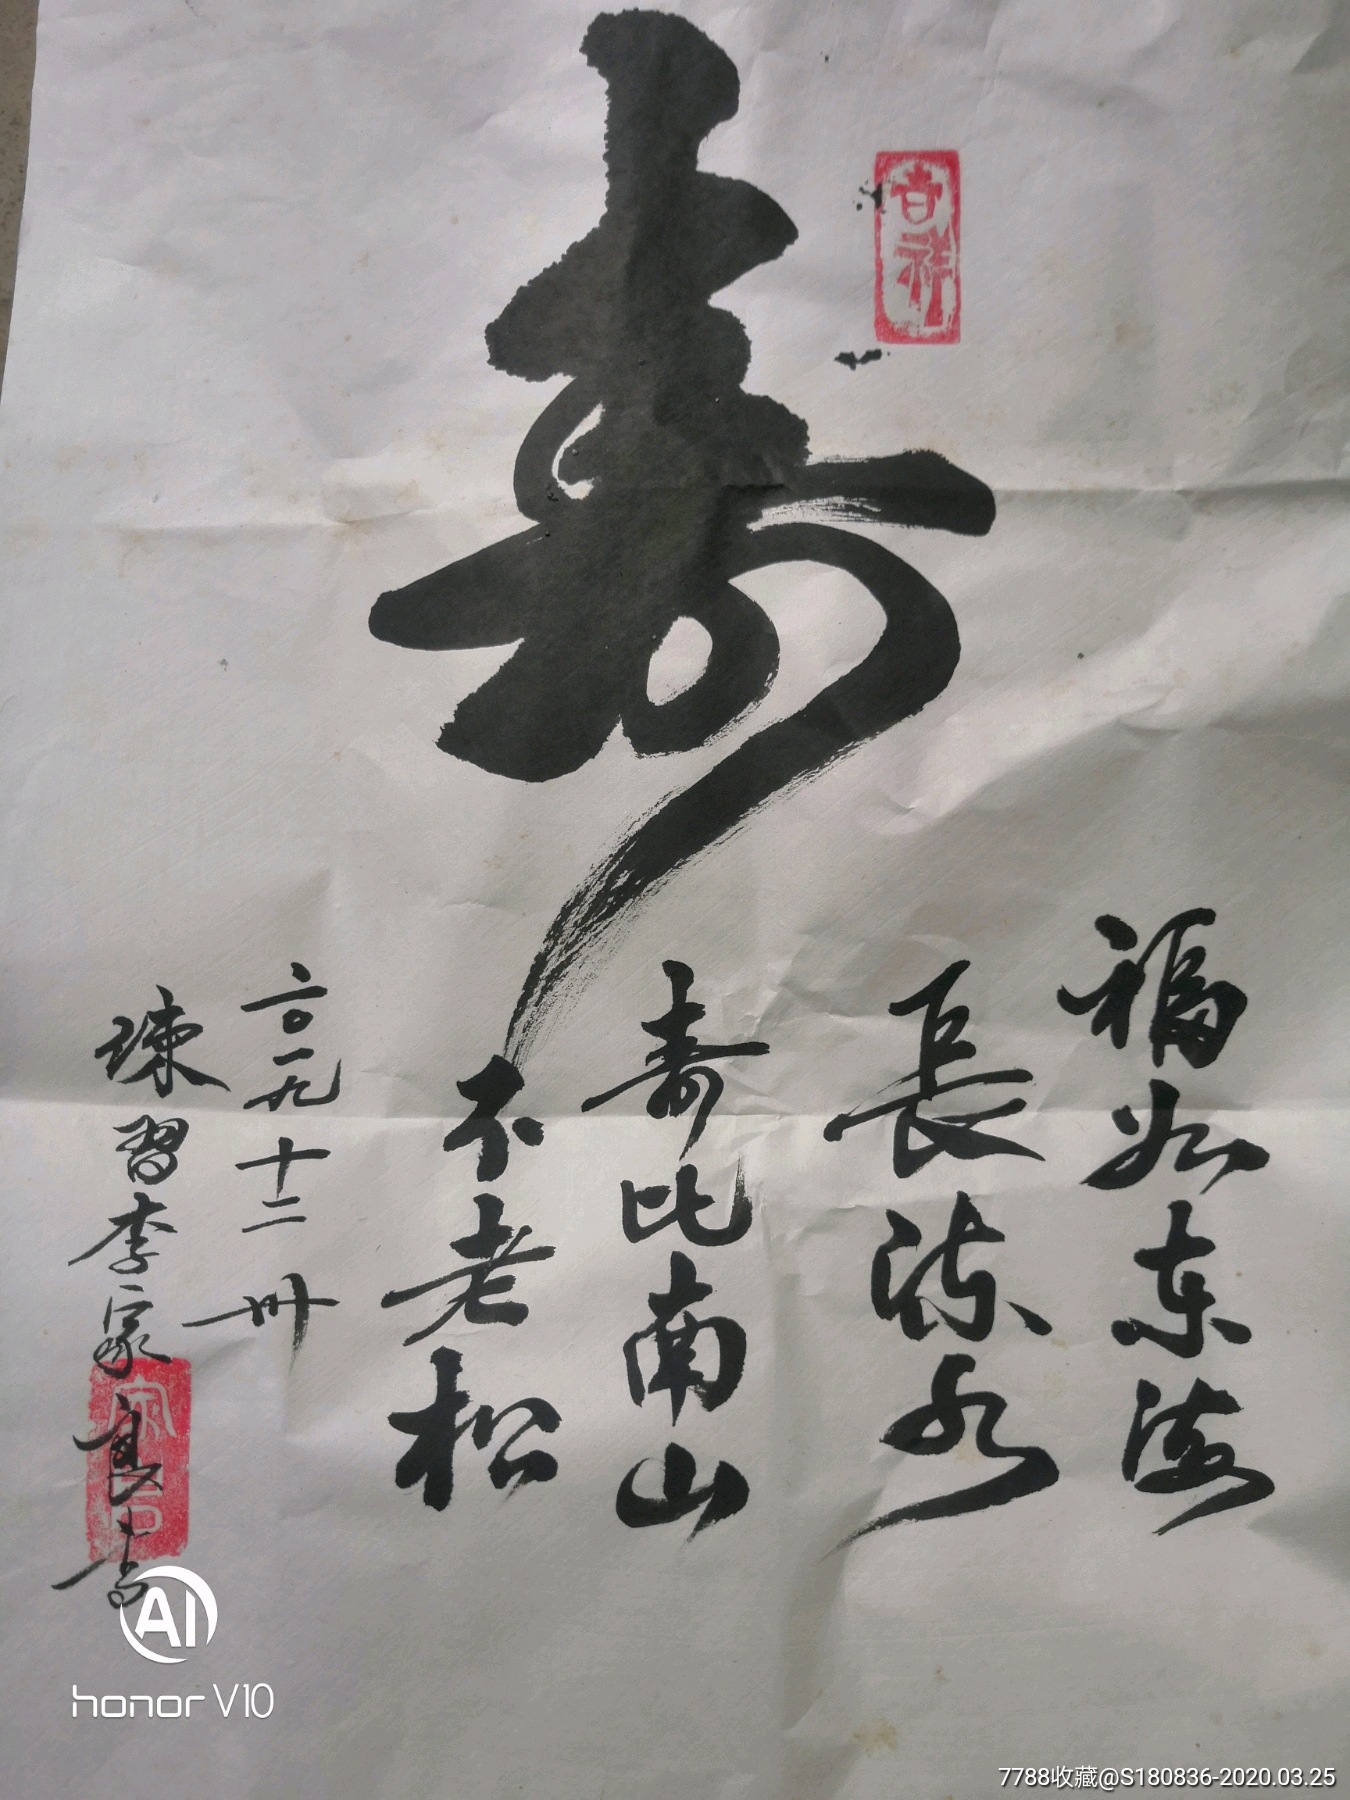 寿
吉祥
福如东海
長流水
寿比南山
不老松
二〇一九十二卅
練習李家良書
AI
honor V10
7788收藏@S180836-2020.03.25